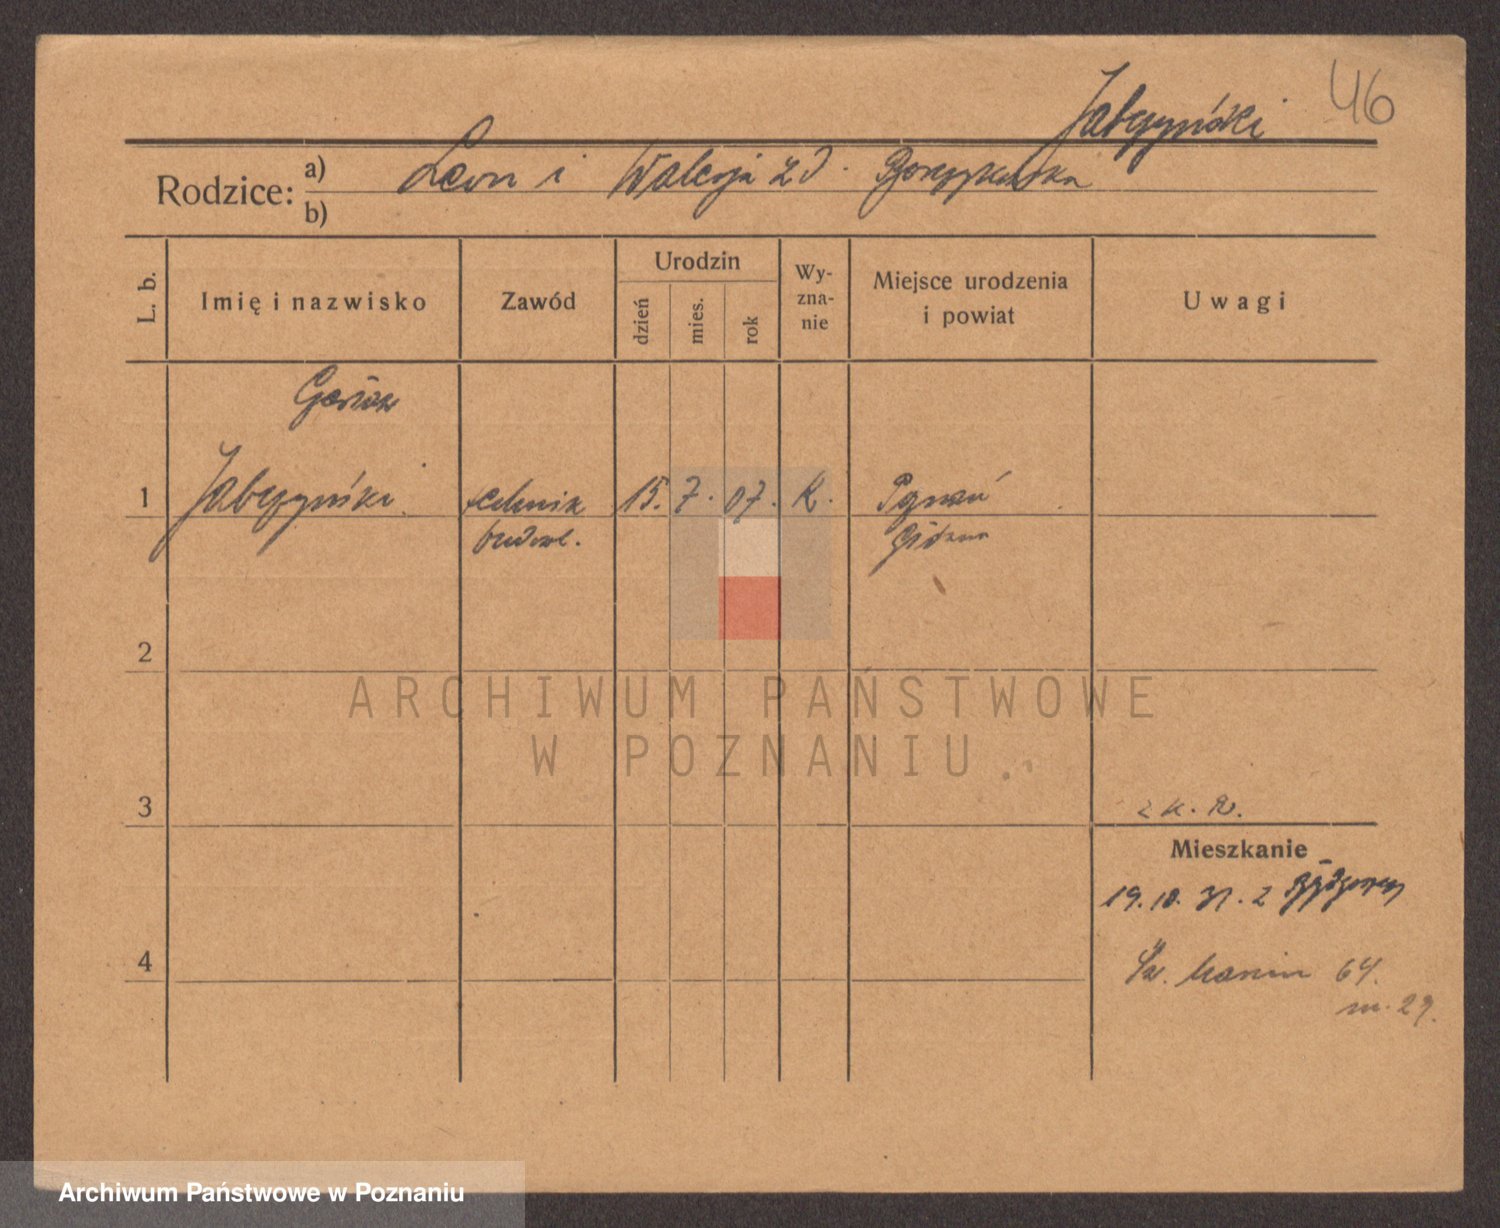 46
Jabczyński
Rodzice: a) Leon i Walerja zd.
b)
L. b.
Imię i nazwisko
Zawód
Urodzin
dzień
mies.
rok
Wy-
zna-
nie
Miejsce urodzenia
i powiat
Uwagi
1 Jabczyński technik 15. 7. 07. K. Poznań
budowl.
2
3
4
Mieszkanie
19.10. 31. z Bydgoszczy
Św. Marcin 64.
m. 29.
ARCHIWUM PAŃSTWOWE
W POZNANIU
Archiwum Państwowe w Poznaniu